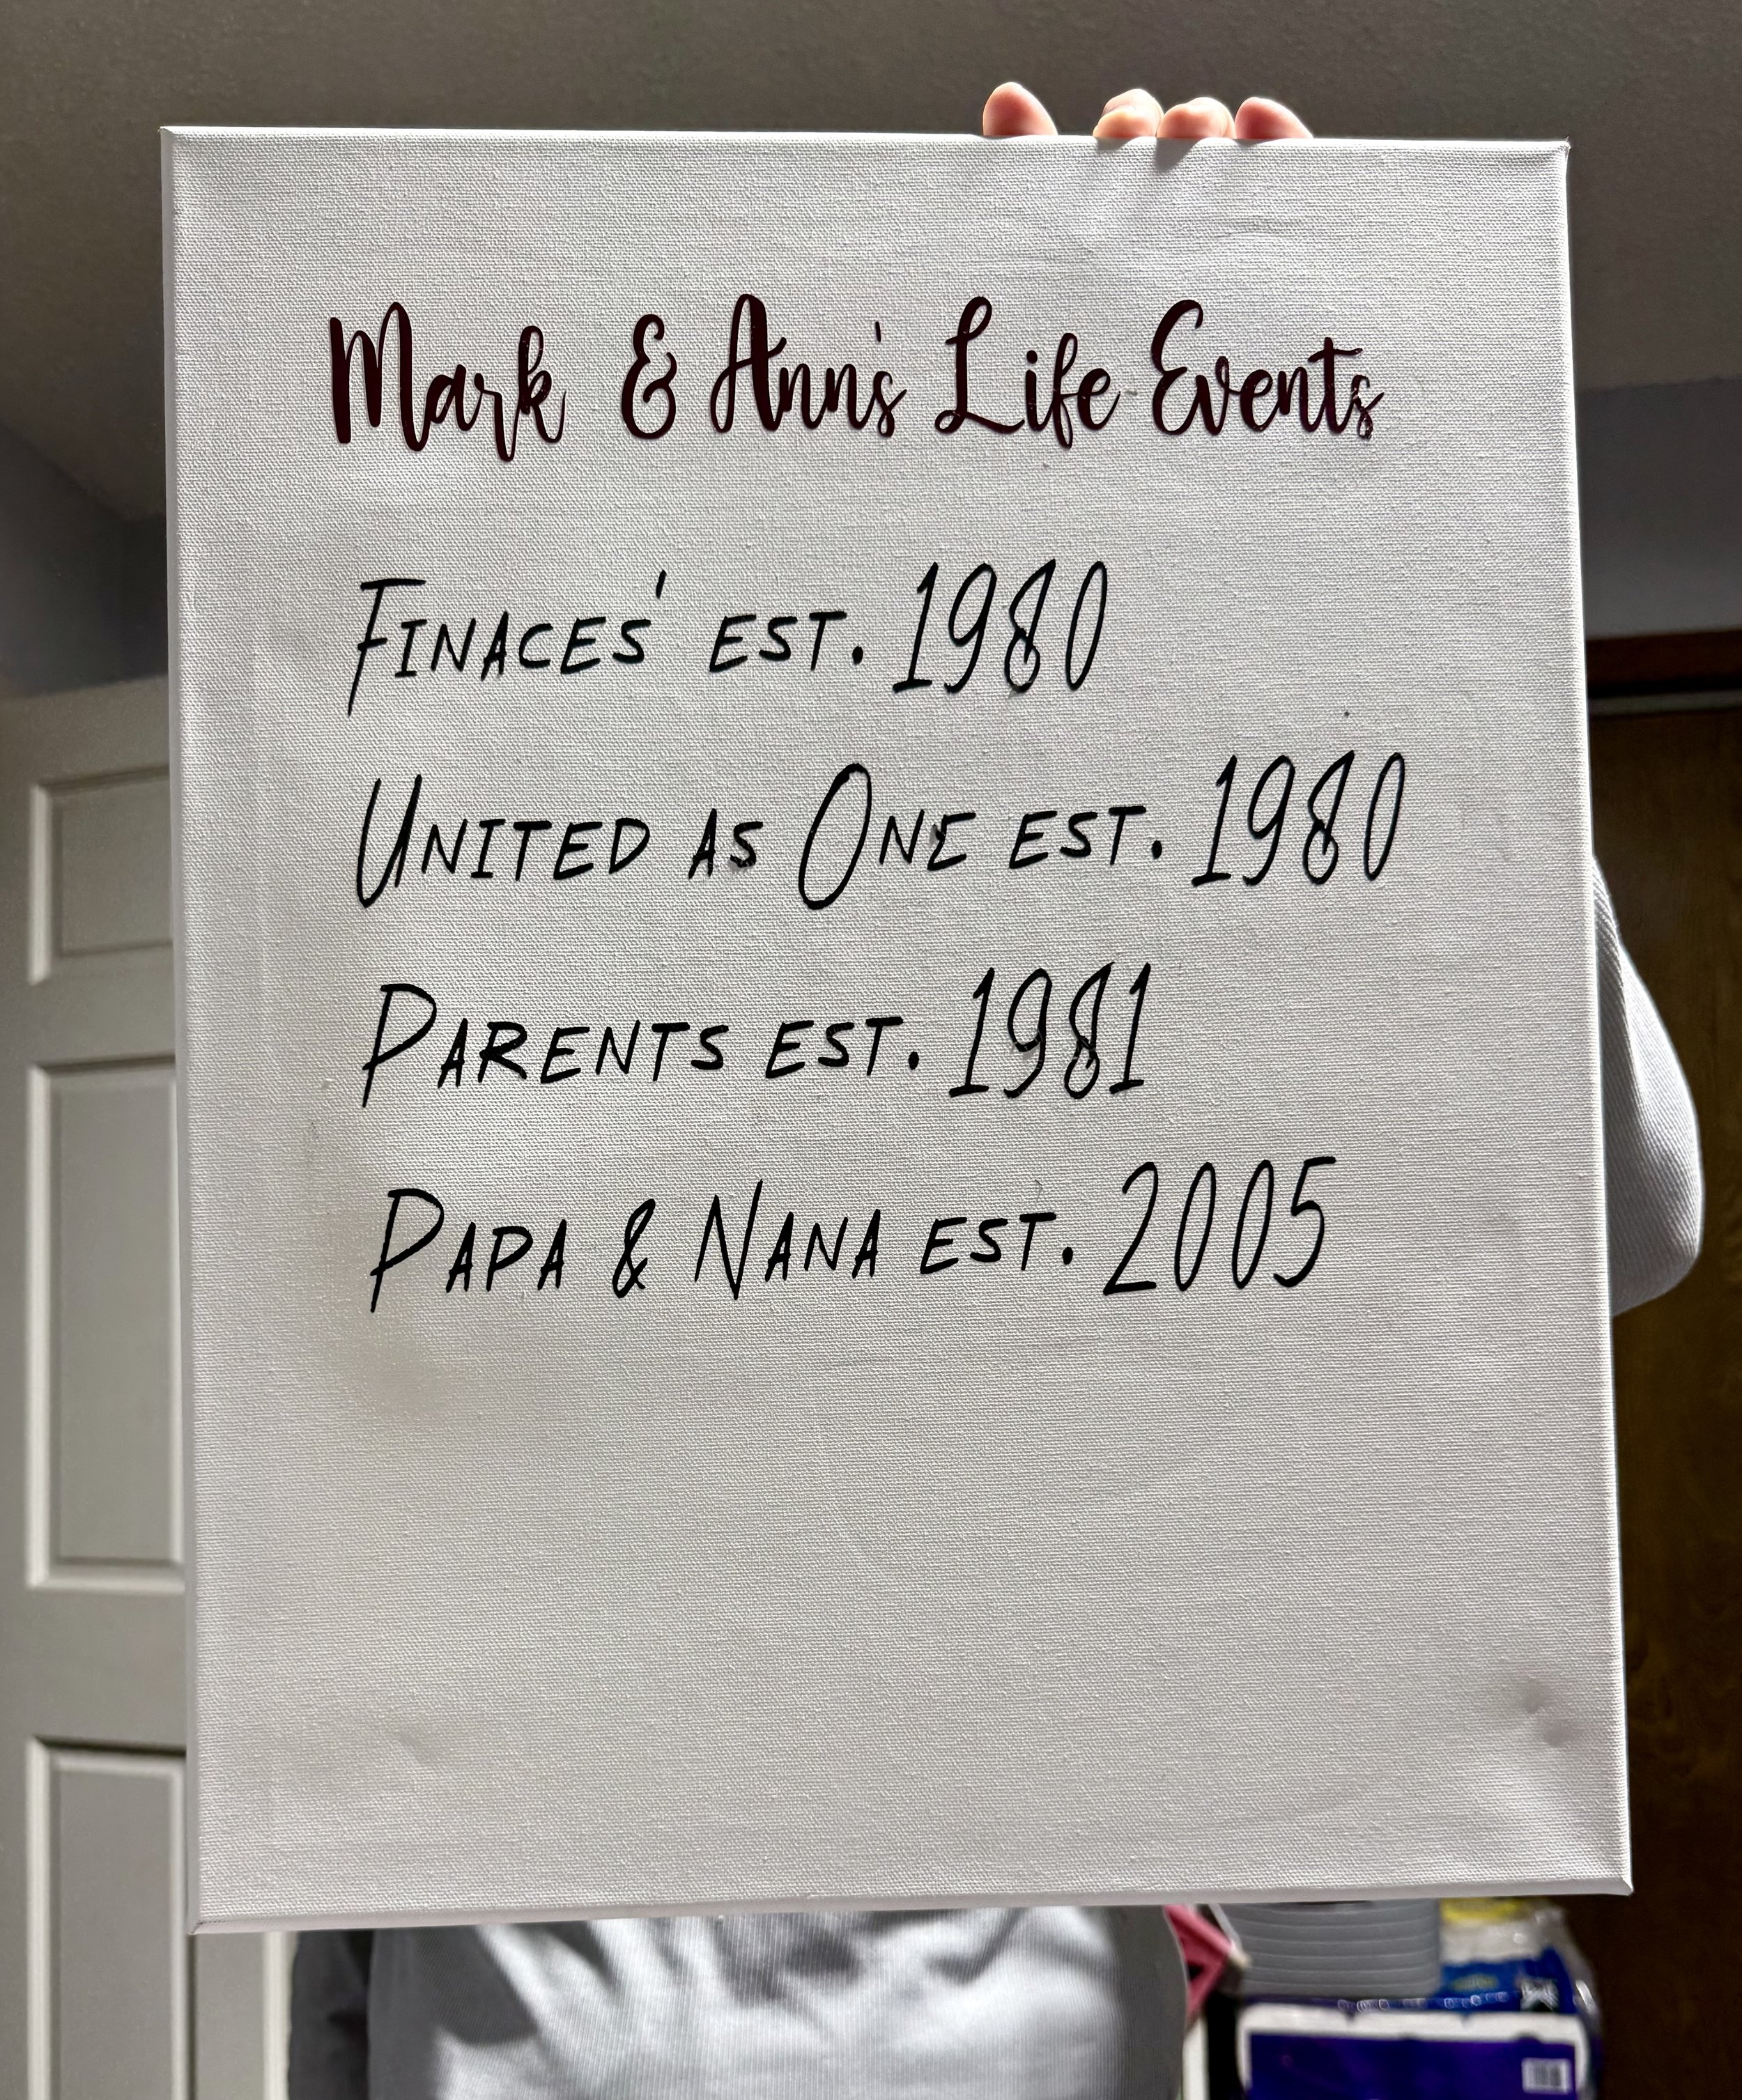 Mark & Ann's Life Events
Finaces' est. 1980
United as One est. 1980
Parents est. 1981
Papa & Nana est. 2005